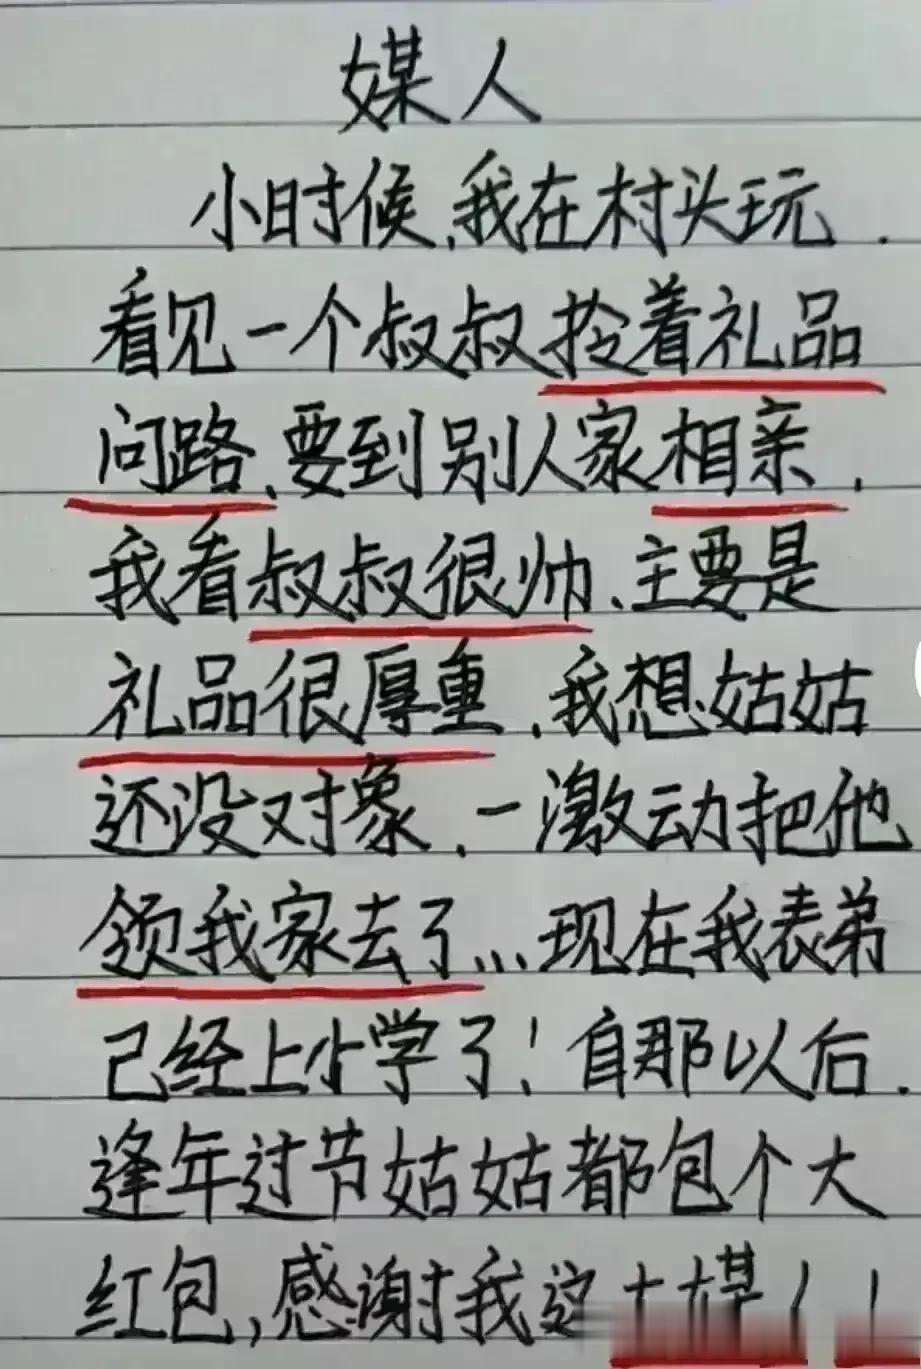 媒人
小时候,我在村头玩.
看见一个叔叔拎着礼品
问路,要到别人家相亲.
我看叔叔很帅,主要是
礼品很厚重,我想姑姑
还没对象,一激动把他
领我家去了...现在我表弟
已经上小学了!自那以后.
逢年过节姑姑都包个大
红包,感谢我这大媒人!